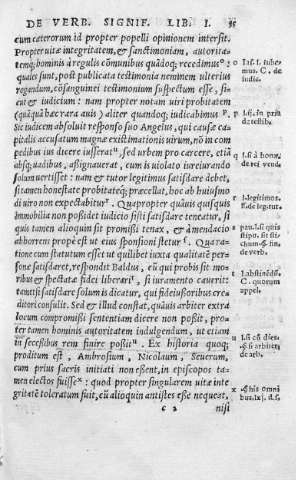 DE VERB. SIGNIF. LIB. I. 35
cum cæterorum id propter popelli opinionem intersit.
Propter uitæ integritatem, & sanctimoniam, autorita-
temq; hominis à regulis cõmunibus quãdoq; recedimus
quales sunt, post publicata testimonia neminem ulterius
rogandum, cõsanguinei testimonium suspectum esse, si-
cut & iudicium: nam propter notam uiri probitatem
(quãquã hæc rara auis) aliter quandoq; iudicabimus
Sic iudicem absoluit responso suo Angelus, qui causæ ca-
pitalis accusatum magnæ existimationis uirum, nõ in com
pedibus ius dicere iusserat, sed urbem pro carcere, etiã
absq; uadibus, assignauerat, cum is uiolato iureiurando
solum uertisset: nam & tutor legitimus satisdare debet,
si tamen honestate probitateq; præcellat, hoc ab huiusmo
di uiro non expectabitur. Quapropter quãuis quisquis
immobilia non possidet iudicio sisti satisdare teneatur, si
quis tamen alioquin sit promissi tenax, & à mendacio
abhorrens propè est ut eius sponsioni stetur. Qua ra-
tione cum statutum esset ut quilibet iuxta qualitatẽ per-
sonæ satisdaret, respondit Baldus, eũ qui probis sit mo-
ribus & spectatæ fidei liberari, si iuramento cauerit:
tantisi satisdare solum is dicatur, qui fideiussoribus cre-
ditori consulit. Sed & illud constat, quãuis arbiter extra
locum compromissi sententiam dicere non possit, pro-
pter tamen hominis autoritatem indulgendum, ut etiam
in secessibus rem finire possit. Ex historia quoq;
proditum est, Ambrosium, Nicolaum, Seuerum,
cum prius sacris initiati non essent, in episcopos ta-
men electos fuisse: quod propter singularem uitæ inte
gritatẽ toleratum fuit, cũ alioquin antistes esse nequeat,
c 2 nisi